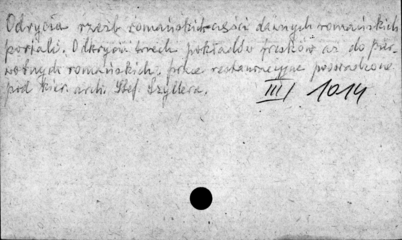 Odrycia rzeźb romańskich części dawnych romańskich
portali. Odkrycie trzech pokładów fresków aż do pier-
wotnych romańskich, prace restauracyjne prowadzone
pod kier. arch. Stef. Szyllera. III/1014